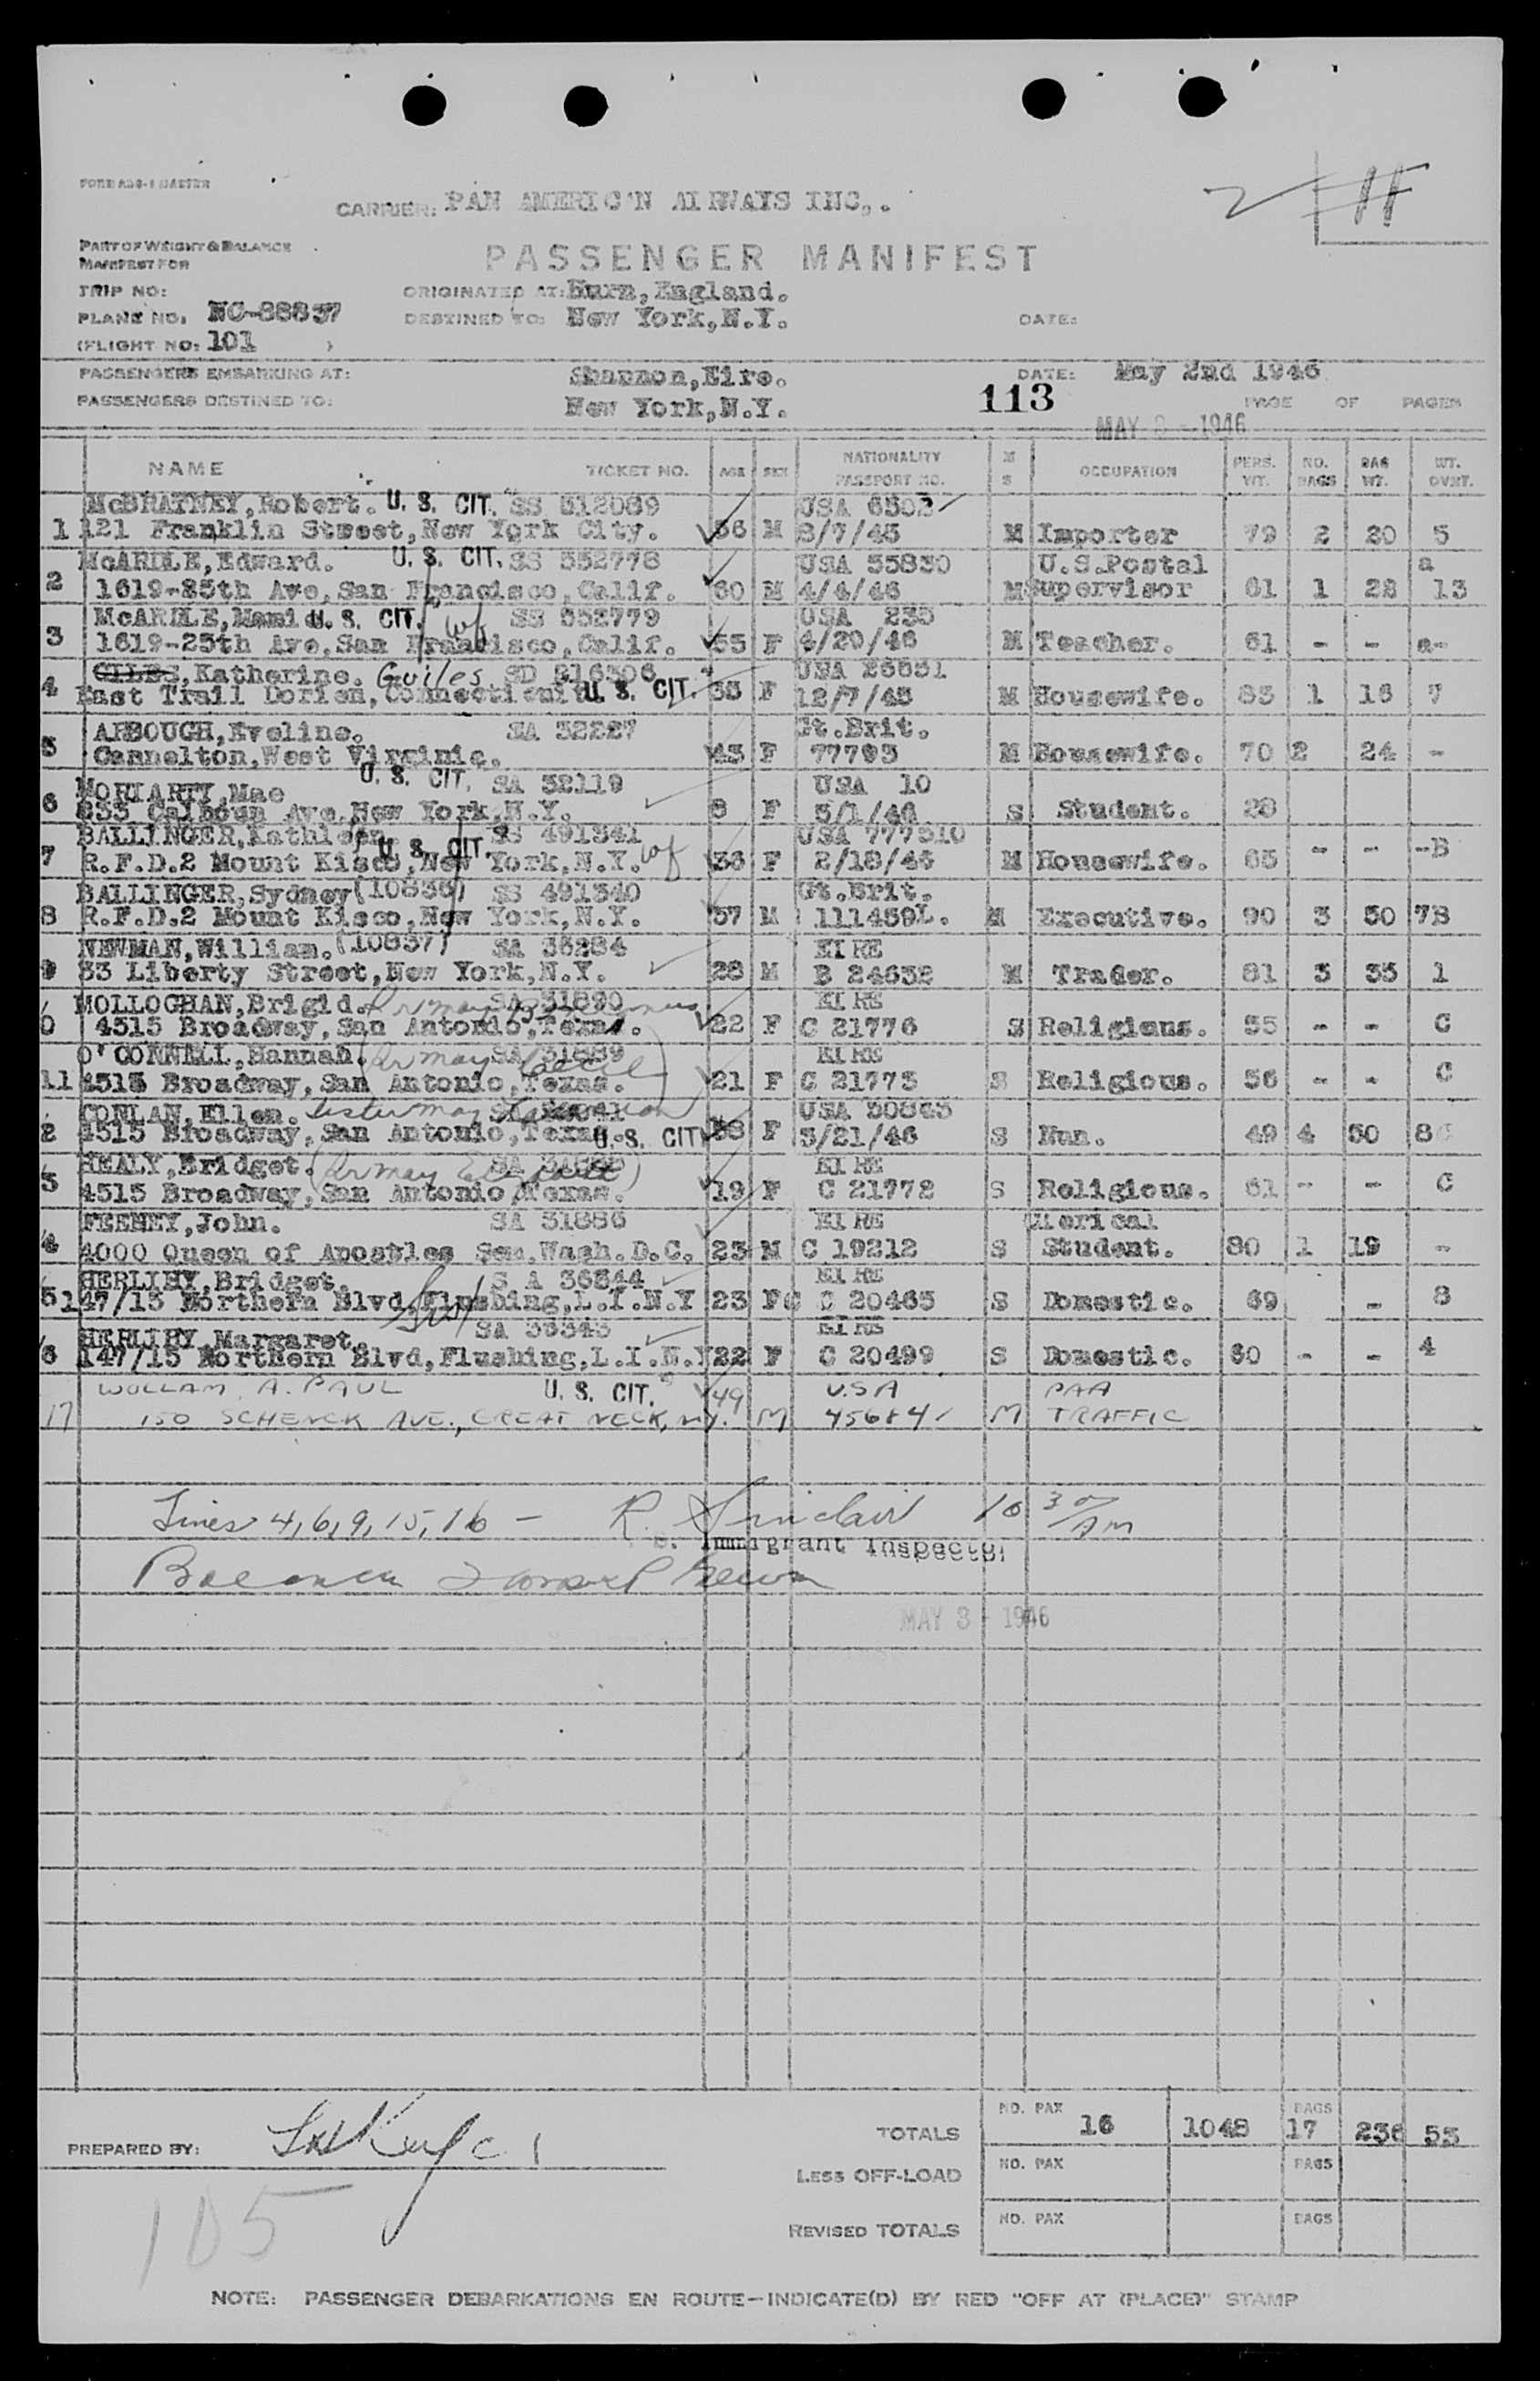 FORM ADS-1 MASTER
CARRIER: PAN AMERIC'N AIRWAYS INC,.
PART OF WEIGHT & BALANCE
MANIFEST FOR
PASSENGER MANIFEST
TRIP NO: ORIGINATED AT: Hurn, England.
PLANE NO. NC-88837 DESTINED TO: New York, N.Y. DATE:
(FLIGHT NO: 101 )
PASSENGERS EMBARKING AT: Shannon, Eire. DATE: May 2nd 1946
PASSENGERS DESTINED TO: New York, N.Y. 113 PAGE OF PAGES
MAY 3 - 1946
NAME TICKET NO. AGE SEX NATIONALITY PASSPORT NO. M S OCCUPATION PERS. WT. NO. BAGS BAG WT. WT. OVRT.
McBRATNEY, Robert. U. S. CIT. SS 512089 USA 6503
1 121 Franklin Street, New York City. 56 M 8/7/45 M Importer 79 2 20 5
McARDLE, Edward. U. S. CIT. SS 552778 USA 55830 U.S.Postal a
2 1619-25th Ave, San Francisco, Calif. 60 M 4/4/46 M Supervisor 81 1 28 13
McARDLE, Mami U. S. CIT. wf SS 552779 USA 235
3 1619-25th Ave, San Francisco, Calif. 55 F 4/20/46 M Teacher. 61 - - a-
GILES, Katherine. Guiles SD 216306 USA 26631
4 East Trail Dorien, Connecticut U. S. CIT. 35 F 12/7/45 M Housewife. 83 1 16 7
ARBOUGH, Eveline. SA 32227 Gt.Brit.
5 Cannelton, West Virginia. 43 F 77793 M Housewife. 70 2 24 -
MORIARTY, Mae U. S. CIT. SA 32119 USA 10
6 833 Calhoun Ave, New York, N.Y. 8 F 3/1/46 S Student. 28
BALLINGER, Kathleen U. S. CIT. SS 491341 USA 777510
7 R.F.D.2 Mount Kisco, New York, N.Y. wf 36 F 2/18/46 M Housewife. 65 - - -B
BALLINGER, Sydney (10836) SS 491340 Gt.Brit.
8 R.F.D.2 Mount Kisco, New York, N.Y. 37 M 111459L. M Executive. 90 3 50 7B
NEWMAN, William. (10837) SA 36284 EIRE
9 33 Liberty Street, New York, N.Y. 28 M B 24632 M Trader. 81 3 35 1
MOLLOGHAN, Brigid. SA 31890 EIRE
0 4515 Broadway, San Antonio, Texas. 22 F C 21776 S Religious. 55 - - C
O'CONNELL, Hannah. (Sr mary Cecil) SA 31889 EIRE
11 4515 Broadway, San Antonio, Texas. 21 F C 21775 S Religious. 56 - - C
CONLAN, Ellen. Sister mary USA 30845
2 4515 Broadway, San Antonio, Texas. U. S. CIT 38 F 3/21/46 S Nun. 49 4 50 8C
HEALY, Bridget. (Sr mary EIRE
3 4515 Broadway, San Antonio, Texas. 19 F C 21772 S Religious. 61 - - C
FEENEY, John. SA 31886 EIRE Clerical
4 4000 Queen of Apostles Sem. Wash. D.C. 23 M C 19212 S Student. 80 1 19 -
HERLIHY, Bridget. S A 36344 EIRE
5 147/15 Northern Blvd, Flushing, L.I.N.Y 23 F C 20465 S Domestic. 69 - 8
HERLIHY, Margaret. SA 36343 EIRE
6 147/15 Northern Blvd, Flushing, L.I.N.Y 22 F C 20499 S Domestic. 60 - - 4
WOLLAM, A. PAUL U. S. CIT. 49 U.S.A PAA
17 150 SCHENCK AVE., GREAT NECK, N.Y. M 45684 M TRAFFIC
Lines 4, 6, 9, 15, 16 - R. Sinclair 10 30 AM
Immigrant Inspector
MAY 3 - 1946
TOTALS NO. PAX 16 1048 BAGS 17 236 53
PREPARED BY:
LESS OFF-LOAD NO. PAX BAGS
REVISED TOTALS NO. PAX BAGS
105
NOTE: PASSENGER DEBARKATIONS EN ROUTE—INDICATE(D) BY RED "OFF AT (PLACE)" STAMP